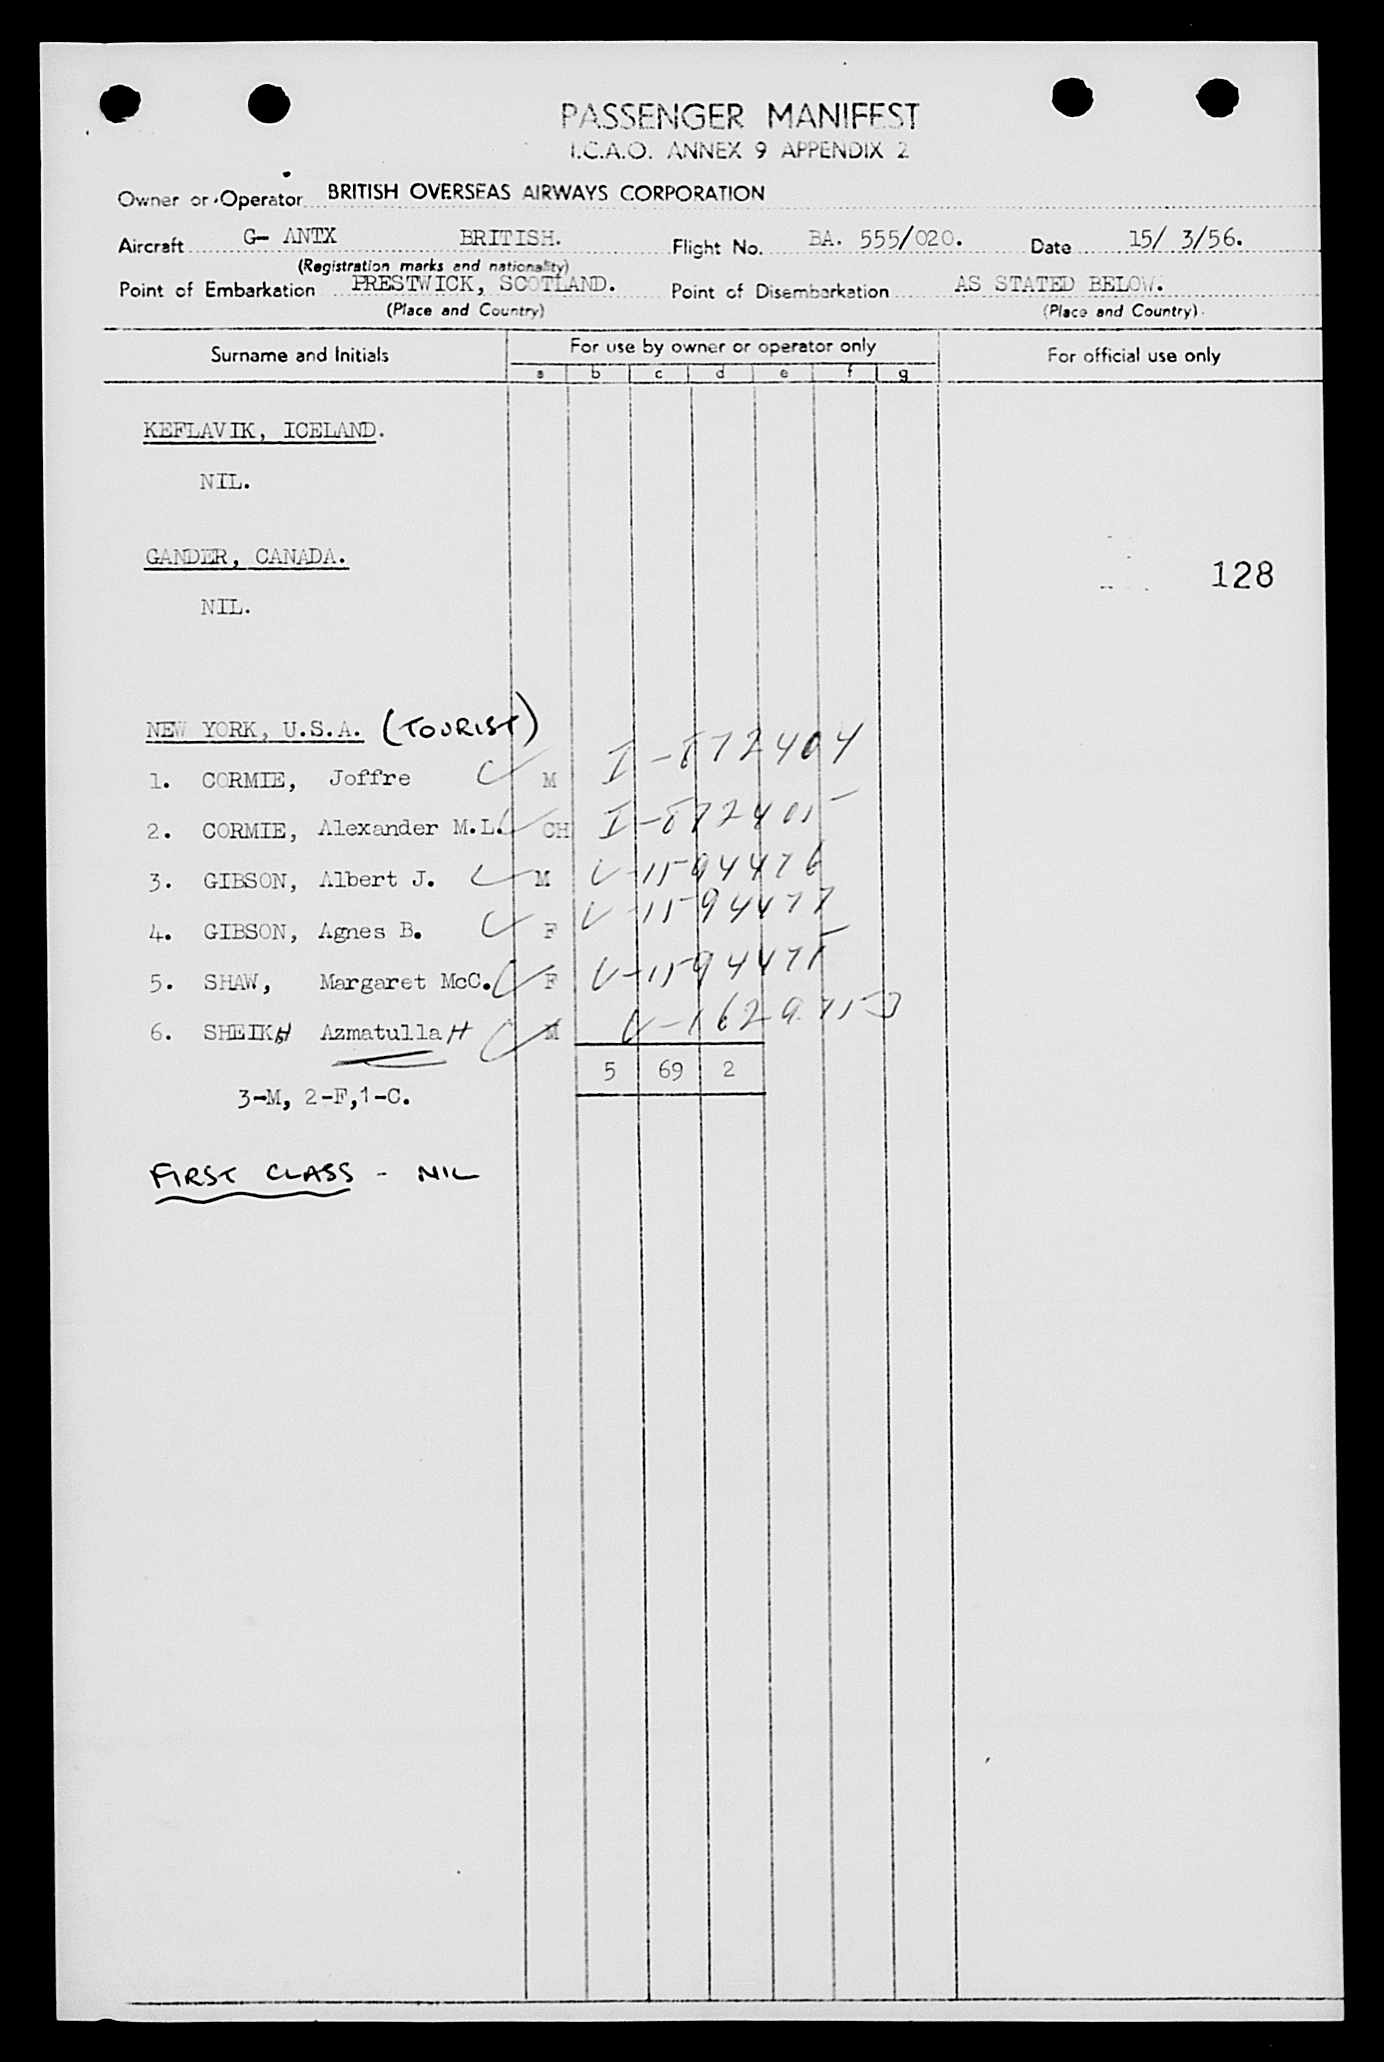 PASSENGER MANIFEST
I.C.A.O. ANNEX 9 APPENDIX 2
Owner or Operator BRITISH OVERSEAS AIRWAYS CORPORATION
Aircraft G- ANTX BRITISH. Flight No. BA. 555/020. Date 15/ 3/56.
(Registration marks and nationality)
Point of Embarkation PRESTWICK, SCOTLAND. Point of Disembarkation AS STATED BELOW.
(Place and Country) (Place and Country)
Surname and Initials For use by owner or operator only For official use only
a b c d e f g
KEFLAVIK, ICELAND.
NIL.
GANDER, CANADA.
128
NIL.
NEW YORK, U.S.A. (TOURIST)
1. CORMIE, Joffre M I-872404
2. CORMIE, Alexander M.L. CH I-872405
3. GIBSON, Albert J. M V-1594476
4. GIBSON, Agnes B. F V-1594477
5. SHAW, Margaret McC. F V-1594475
6. SHEIKH Azmatullah M V-1629753
5 69 2
3-M, 2-F,1-C.
FIRST CLASS - NIL